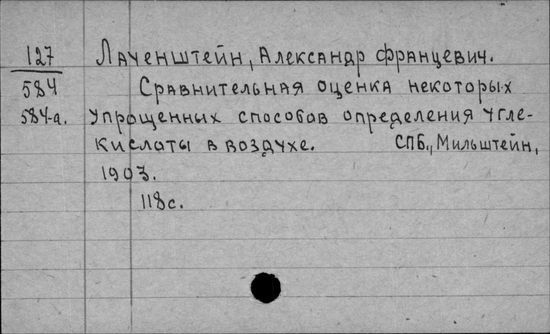 127 Лаченштейн, Александр Францевич.
584 Сравнительная оценка некоторых
584-а. упрощенных способов определения угле-
кислоты в воздухе. СПБ., Мильштейн,
1903.
118с.